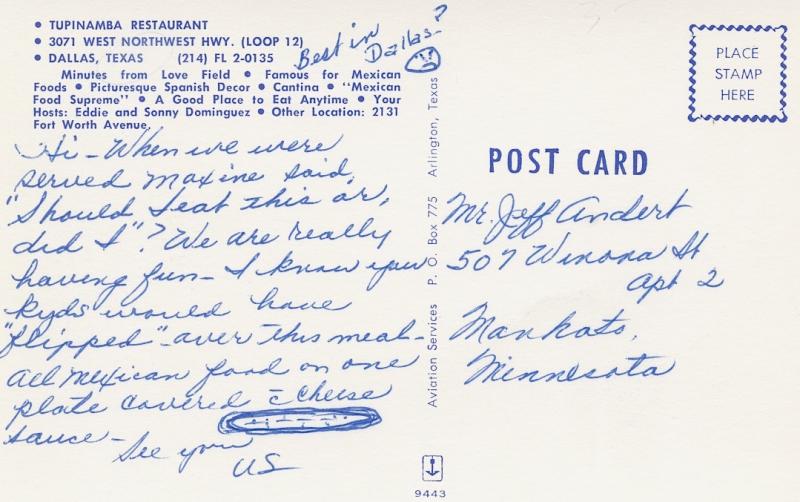 • TUPINAMBA RESTAURANT
• 3071 WEST NORTHWEST HWY. (LOOP 12)
• DALLAS, TEXAS (214) FL 2-0135
Minutes from Love Field • Famous for Mexican
Foods • Picturesque Spanish Decor • Cantina • "Mexican
Food Supreme" • A Good Place to Eat Anytime • Your
Hosts: Eddie and Sonny Dominguez • Other Location: 2131
Fort Worth Avenue.
Best in
Dallas?
Hi - When we were
served Maxine said,
"Should I eat this or,
did I"? We are really
having fun - I know you
kyds would have
"flipped" - over this meal -
all Mexican food on one
plate covered c̄ cheese
sauce -
See you
US
Aviation Services P. O. Box 775 Arlington, Texas
PLACE
STAMP
HERE
POST CARD
Mr. Jeff Andert
507 Winona St
Apt 2
Mankato,
Minnesota
9443